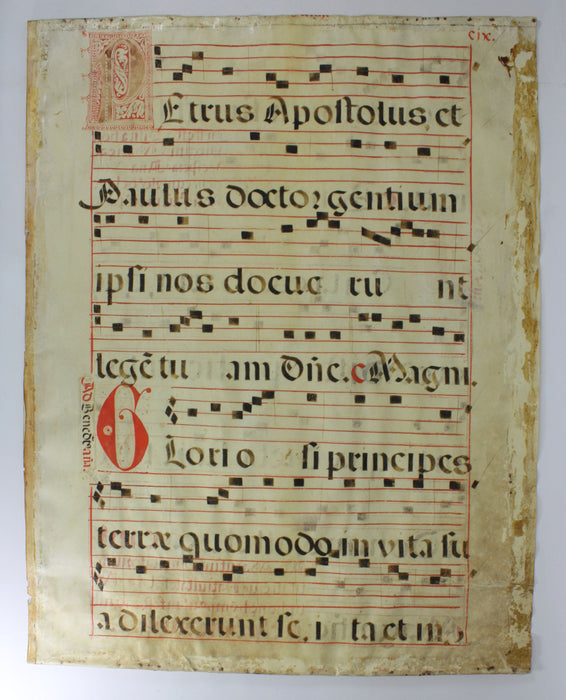 cix.
PEtrus Apostolus, et
Paulus doctor gentium
ipsi nos docue ru nt
legē tu am Dñe. c Magni.
Ad Bened
GLorio si principes
terræ quomodo in vita su
a dilexerunt se, i ta et in